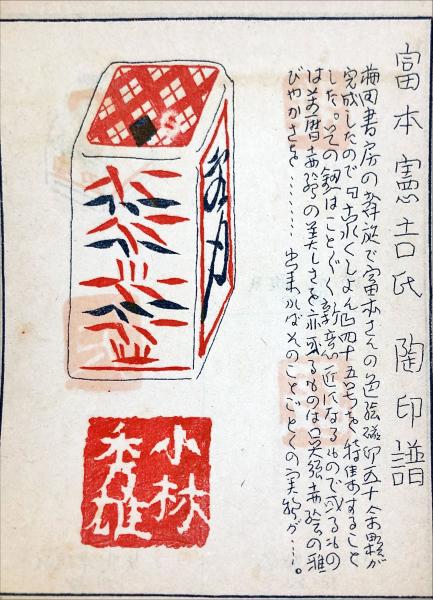 富本憲吉氏 陶印譜
梅田書房の斡旋で富本さんの色絵磁印五十余顆が
完成したのでこれくしよん四十五号を特集すること
した。その鈕はことぐく新意匠になるもので或るもの
は万暦赤絵の美しさを示し或るものは呉須赤絵の雅
びやかさを……… 出来ればそのことごとくの実物が…。
小林
秀雄